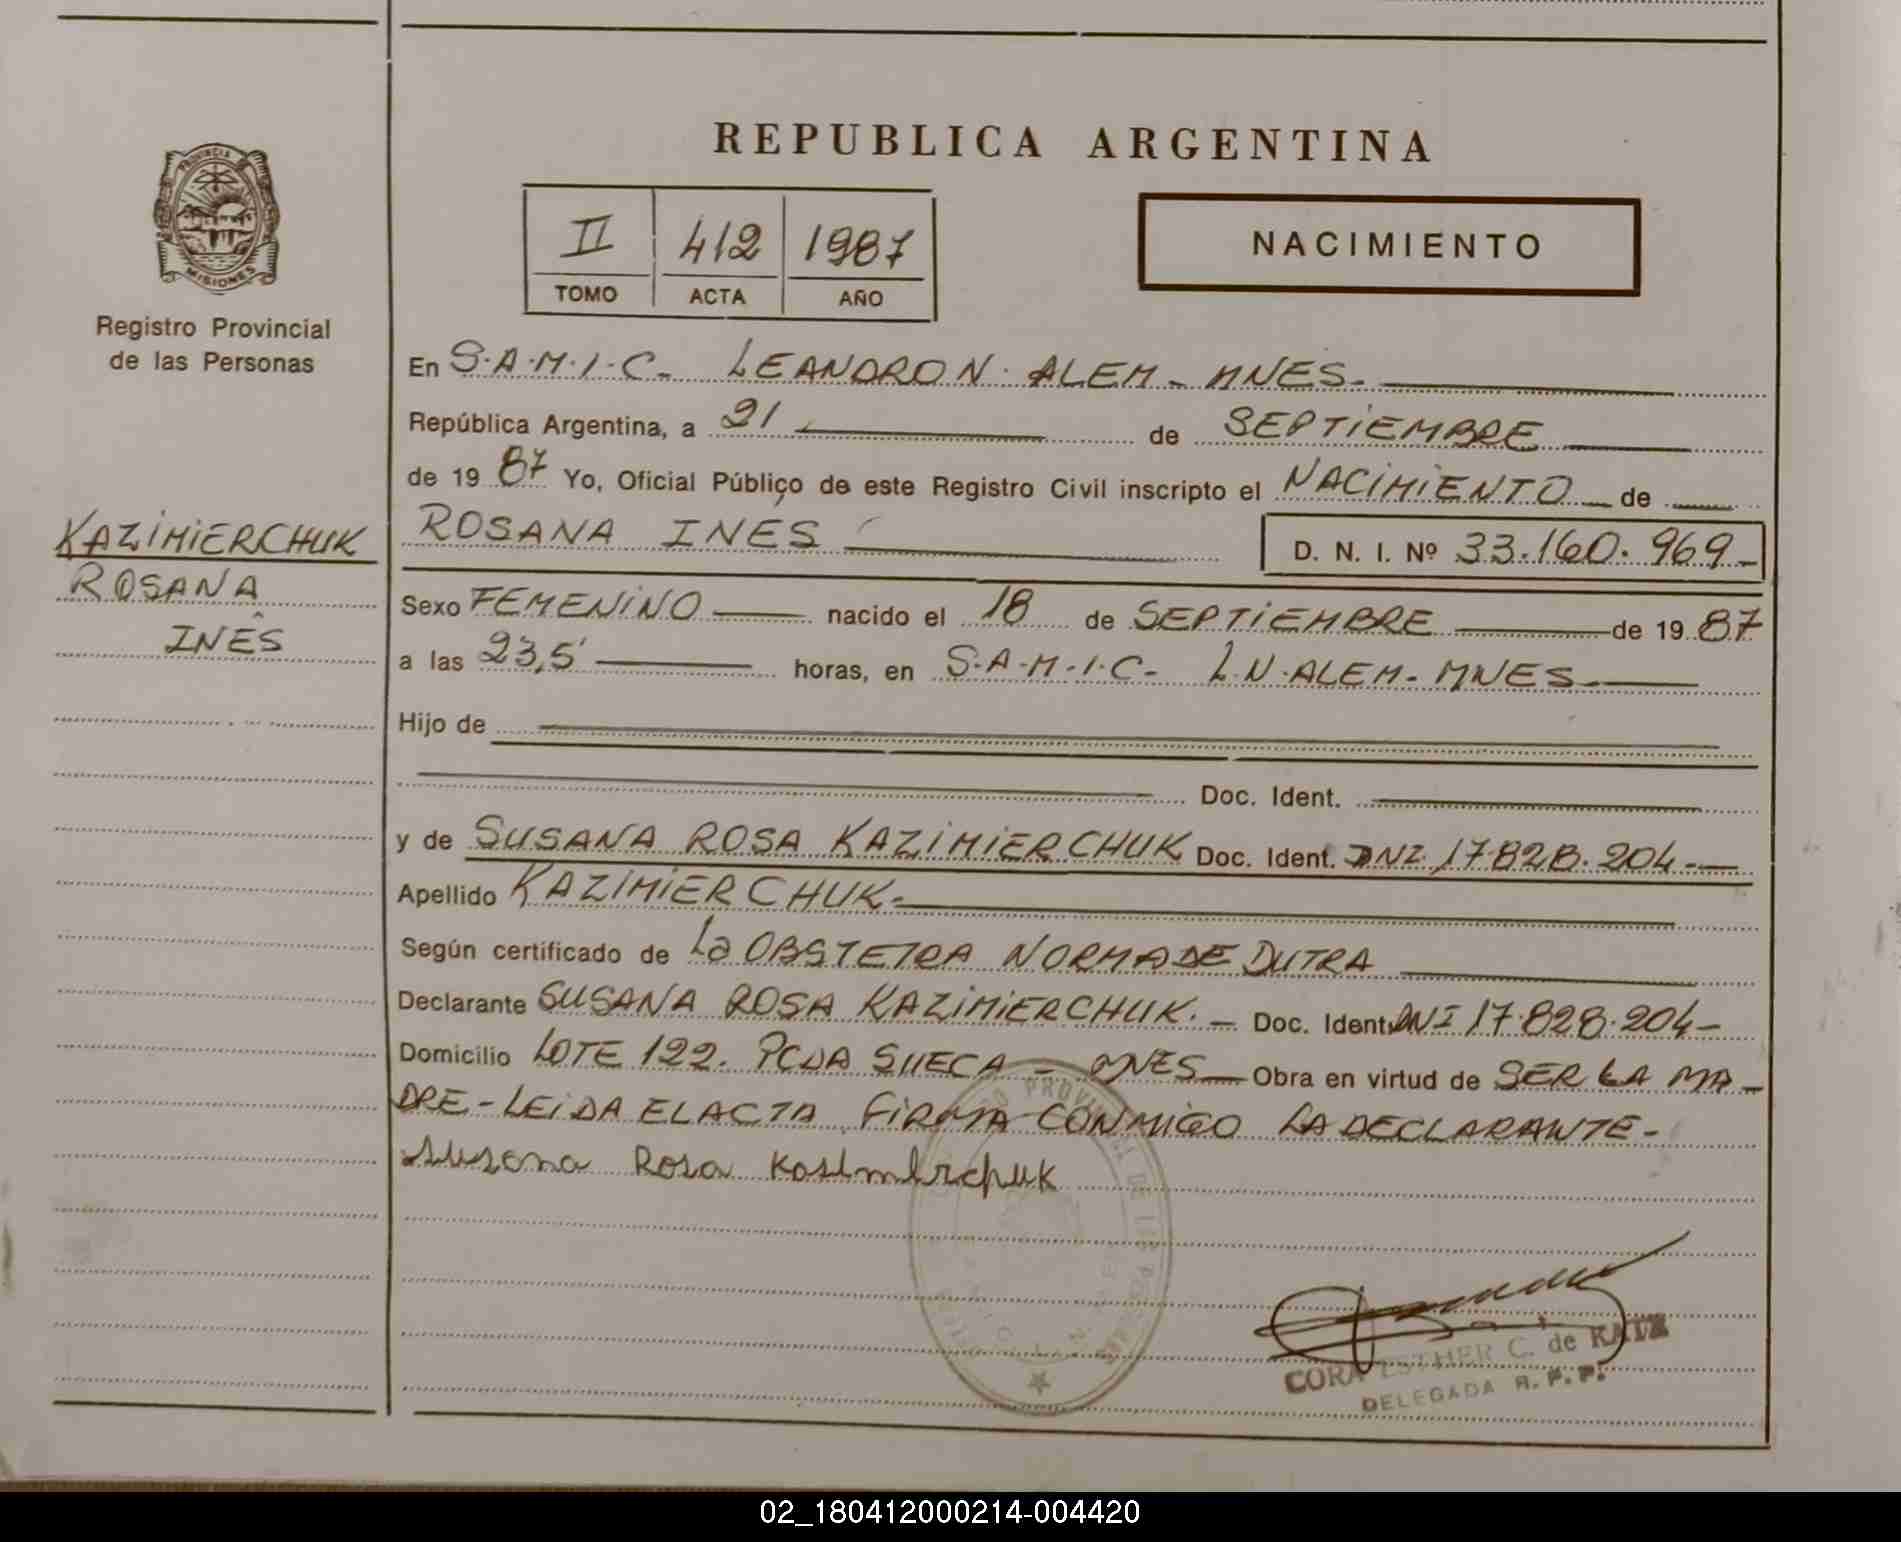 REPUBLICA ARGENTINA
PROVINCIA DE
MISIONES
Registro Provincial
de las Personas
II 412 1987
TOMO ACTA AÑO
NACIMIENTO
En S.A.M.I.C. LEANDRO N. ALEM - MNES.
República Argentina, a 21 de SEPTIEMBRE
de 1987 Yo, Oficial Público de este Registro Civil inscripto el NACIMIENTO de
KAZIMIERCHUK
ROSANA
INÉS
ROSANA INES D. N. I. Nº 33.160.969-
Sexo FEMENINO nacido el 18 de SEPTIEMBRE de 1987
a las 23,5' horas, en S.A.M.I.C- L.N.ALEM- MNES-
Hijo de
Doc. Ident.
y de SUSANA ROSA KAZIMIERCHUK Doc. Ident. DNI. 17.828.204-
Apellido KAZIMIERCHUK-
Según certificado de La OBSTETRA NORMA DE DUTRA
Declarante SUSANA ROSA KAZIMIERCHUK. - Doc. Ident. DNI 17.828.204-
Domicilio LOTE 122. PCDA SUECA - MNES- Obra en virtud de SER LA MA-
DRE - LEIDA EL ACTA FIRMA CONMIGO LA DECLARANTE-
Susana Rosa Kasimirchuk
CORA ESTHER C. de KATZ
DELEGADA R. P. P.
02_180412000214-004420